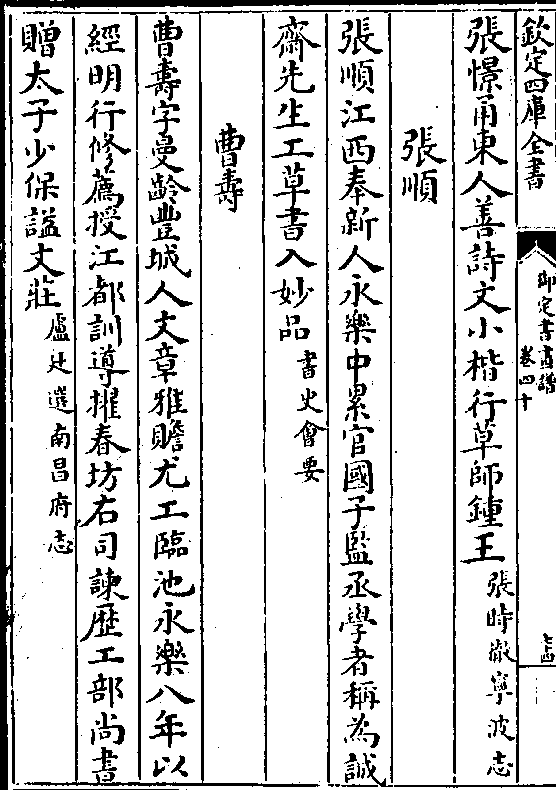 欽定四庫全書
御定書畫譜
卷四十
張憬甬東人善詩文小楷行草師鍾王張時徹寧波志
張順
張順江西奉新人永樂中累官國子監丞學者稱為誠
齋先生工草書入妙品書史會要
曹壽
曹壽字曼齡豐城人文章雅贍尤工臨池永樂八年以
經明行修薦授江都訓導擢春坊右司諫歷工部尚書
贈太子少保謚文莊盧廷選南昌府志